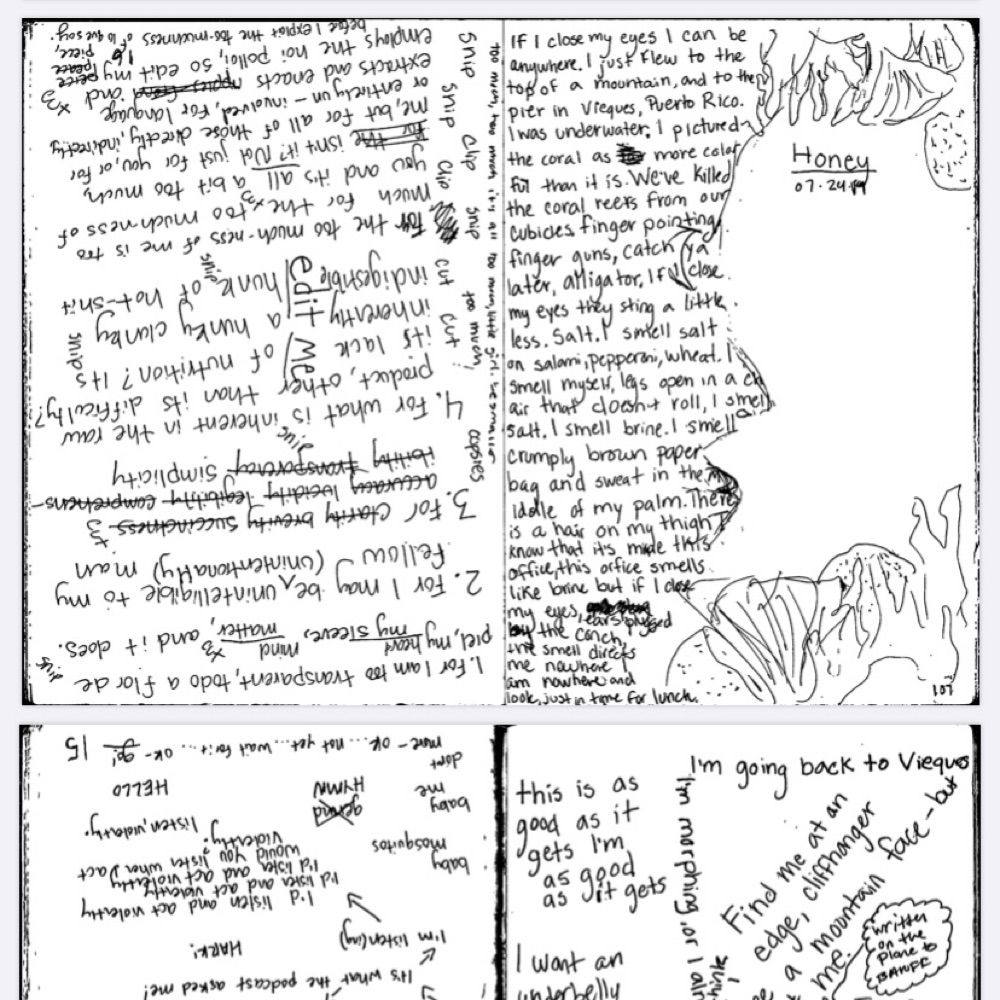 1. For I am too transparent, todo a flor de
piel, my heart my sleeve, mind matter, and it does.
snip
2. For I may be unintelligible to my
fellow (unintentionally) man
3. For clarity brevity succinctness &
accuracy lucidity legibility comprehens-
ibility transparency simplicity
snip
4. For what is inherent in the raw
product, other than its difficulty?
its lack of nutrition? Its
inherently a hunky clunky
indigestible hunk of hot-shit
edit me
snips
snip
for the too much-ness of me is too
much for the too x3 much-ness of
you and it's all a bit too much
for the isn't it? Not just for you, or for
me, but for all of those directly, indirectly
or entirely un-involved, For, language
extracts and enacts and x3
employs the hoi polloi, so edit my piece, peace
before I exploit the too-muchness of lo que soy.
16
snip snip clip clip snip cut cut too much, copies
too much, too much, it's all too much, little girl.
If I close my eyes I can be
anywhere. I just flew to the
top of a mountain, and to the
pier in Vieques, Puerto Rico.
I was underwater. I pictured
the coral as more color
ful than it is. We've killed
the coral reefs from our
cubicles, finger pointing
finger guns, catch ya
later, alligator, If I close
my eyes they sting a little
less. Salt. I smell salt
on salami, pepperoni, wheat. I
smell myself, legs open in a ch
air that doesn't roll, I smell
salt. I smell brine. I smell
crumply brown paper
bag and sweat in the m
iddle of my palm. There
is a hair on my thigh I
know that it's made this
office, this office smells
like brine but if I close
my eyes, ears plugged
by the conch,
the smell directs
me nowhere I
am nowhere and
look, just in time for lunch.
Honey
07.24.19
107
It's what the podcast asked me!
HARK!
I'm listen(ing)
I'd listen and act violently
I'd listen and act violently
I'd listen and act violently
would you listen when I act
violently?
listen, violently.
baby mosquitos
baby gerund
me HYMN HELLO
dont
move - ok ... not yet ... wait for it ... ok - go! 15
this is as
good as it
gets I'm
as good
as it gets
I want an
underbelly
I'm going back to Vieques
I'm morphing, or I am
Find me at an
edge, cliffhanger
a mountain face - but
me.
written
on the
plane to
BANFF